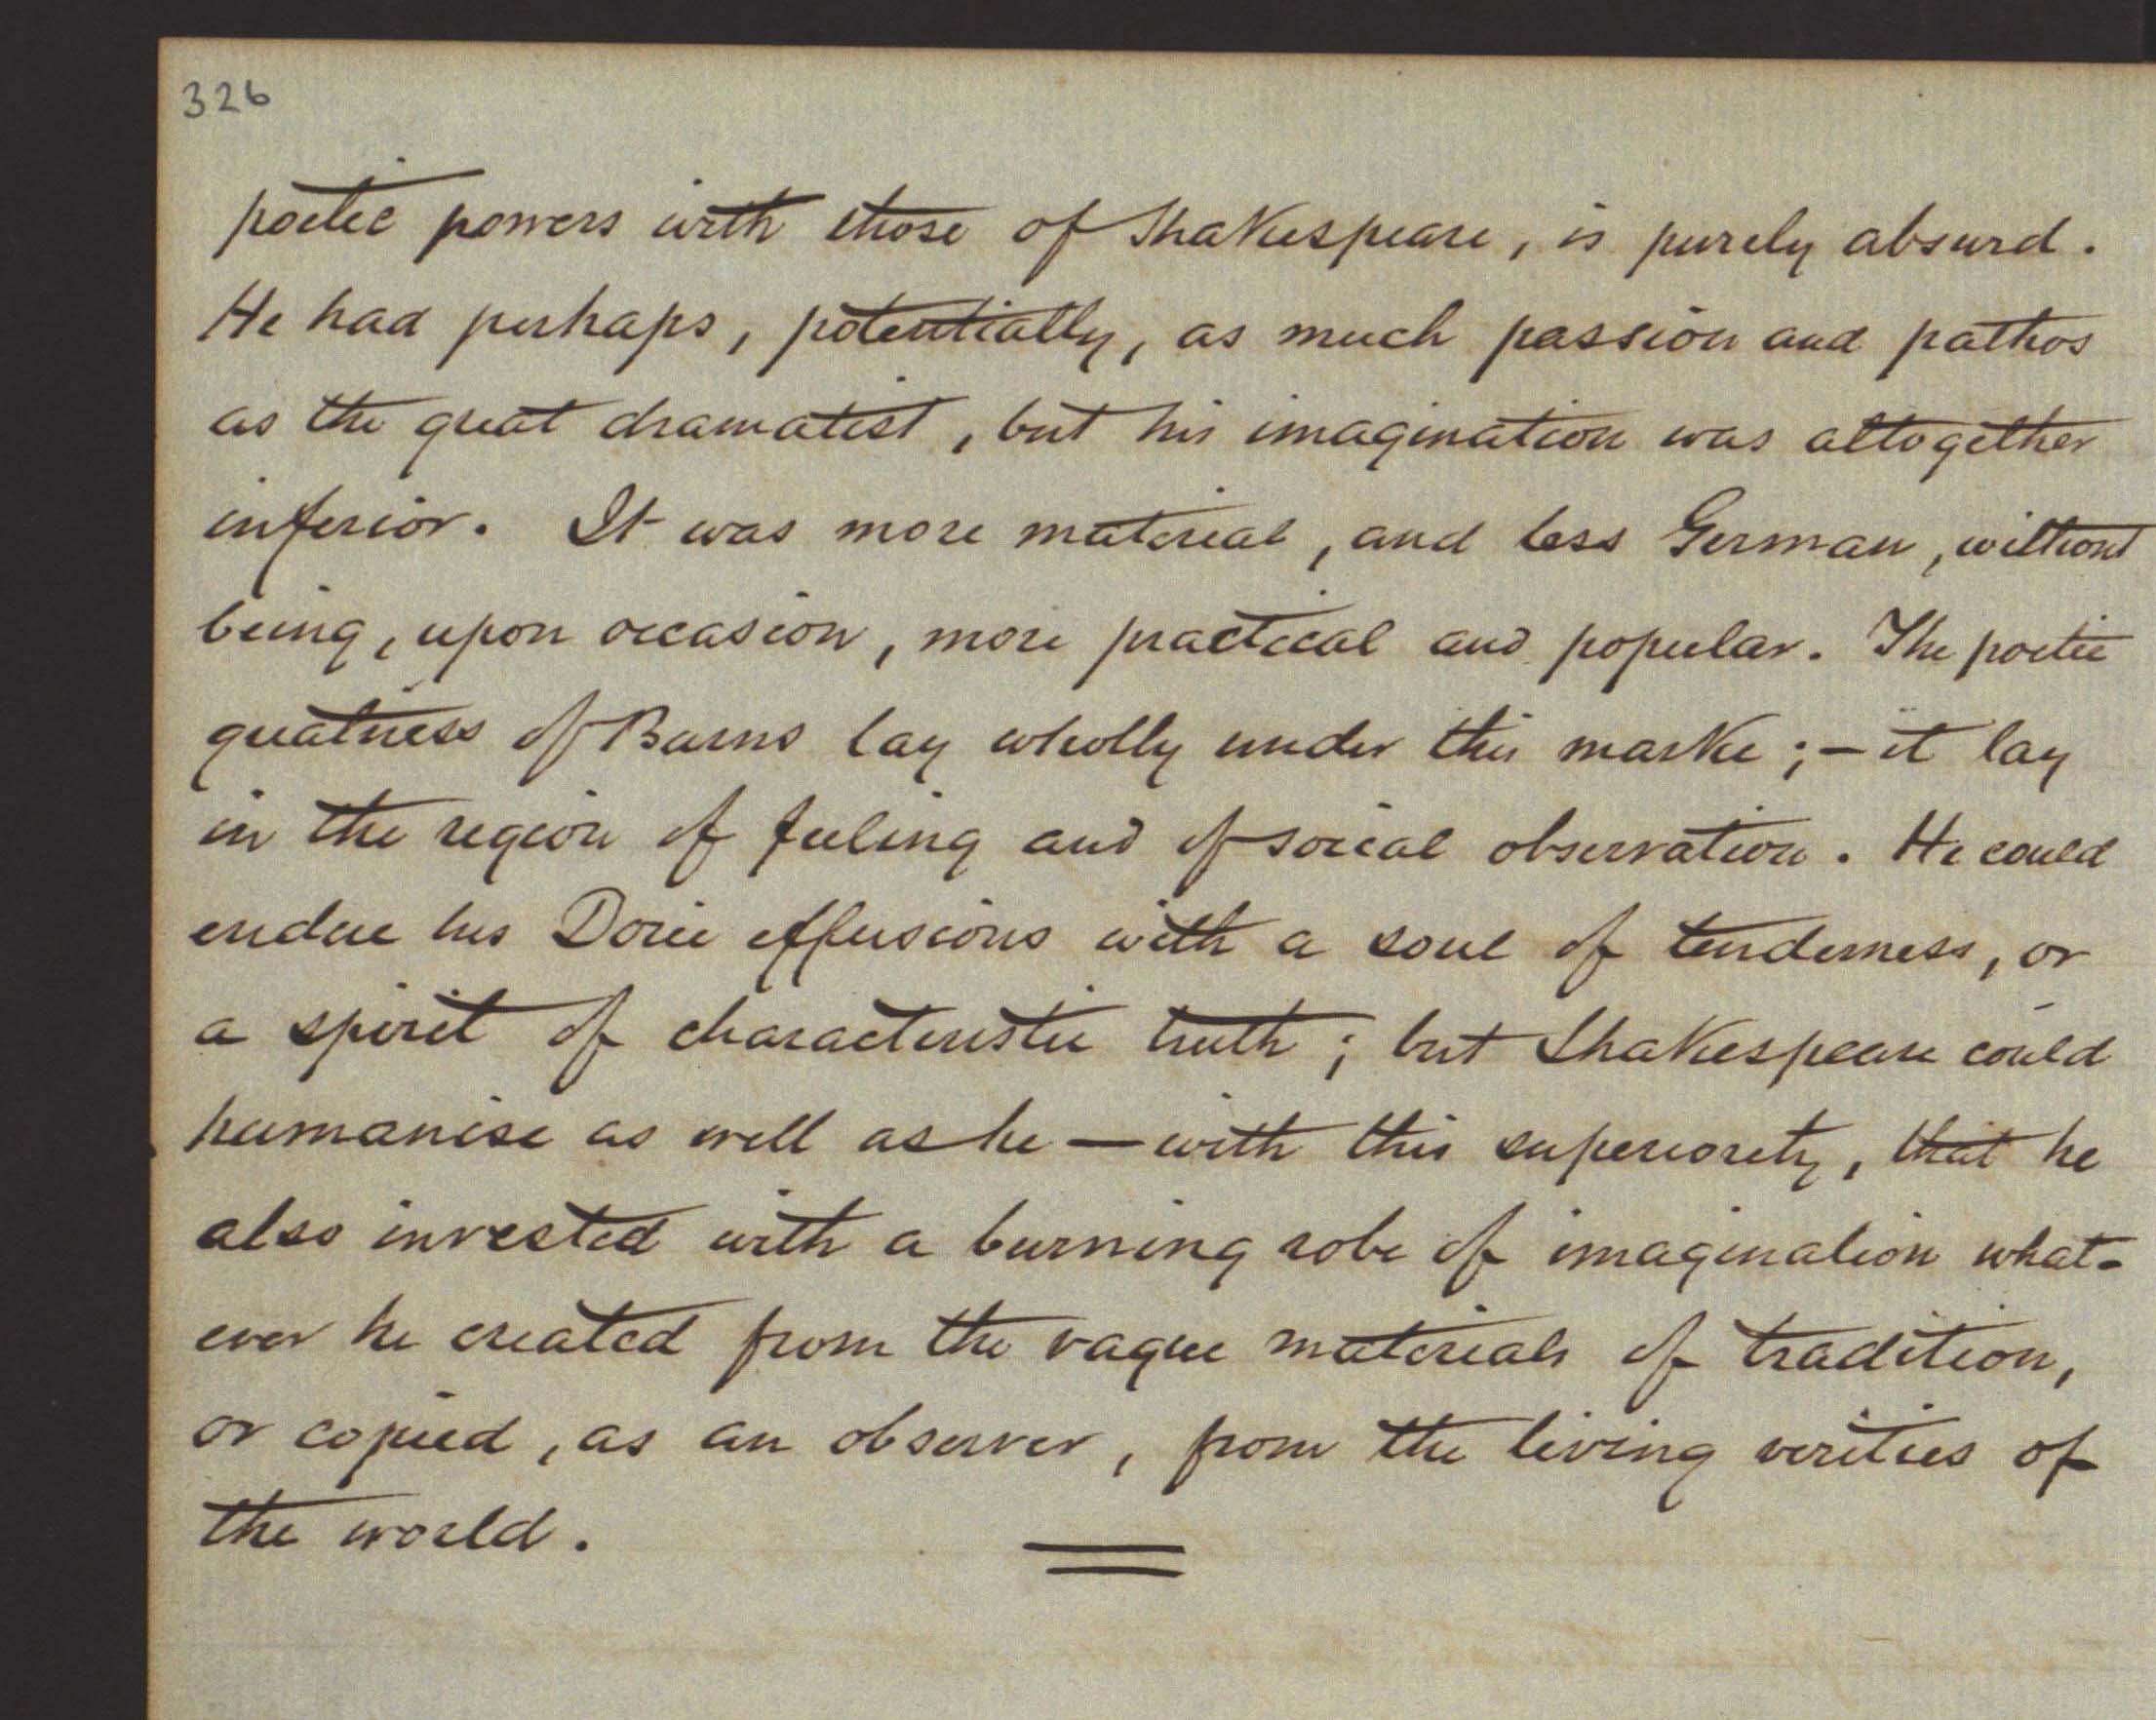 326
poetic powers with those of Shakespeare, is purely absurd.
He had perhaps, potentially, as much passion and pathos
as the great dramatist, but his imagination was altogether
inferior. It was more material, and less German, without
being, upon occasion, more practical and popular. The poetic
greatness of Burns lay wholly under this marke; – it lay
in the region of feeling and of social observation. He could
endue his Doric effusions with a soul of tenderness, or
a spirit of characteristic truth; but Shakespeare could
humanise as well as he — with this superiority, that he
also invested with a burning robe of imagination what-
ever he created from the vague materials of tradition,
or copied, as an observer, from the living verities of
the world.